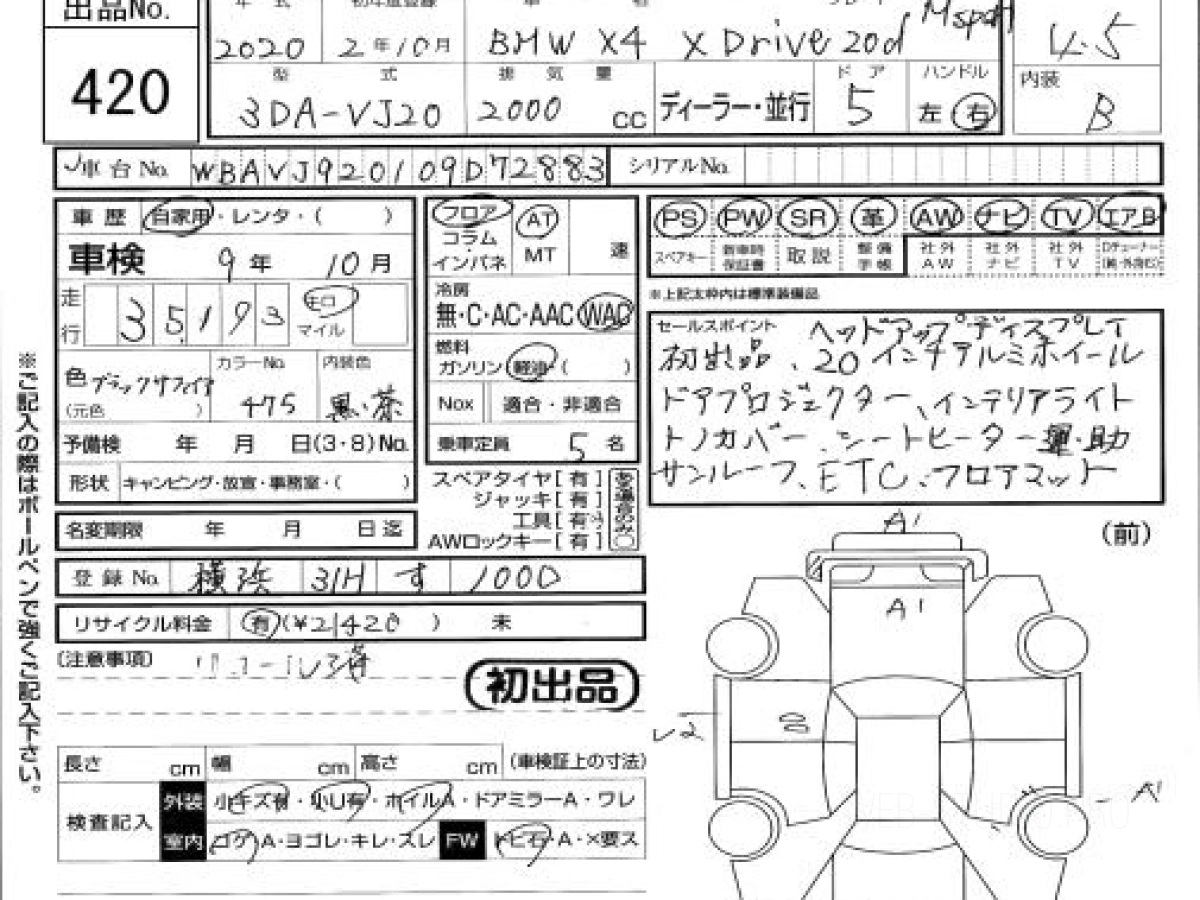 出品No.
420
年式 初年度登録 車名
2020 2年10月 BMW X4 X Drive 20d Mspor
4.5
型式 排気量 ドア ハンドル 内装
3DA-VJ20 2000 cc ディーラー・並行 5 左 右 B
車台No. WBAVJ920109D72883 シリアルNo.
車歴 自家用・レンタ・( )
車検 9年 10月
走行 35,193 キロ マイル
色 ブラックサファイア (元色 ) カラーNo. 475 内装色 黒い茶
予備検 年 月 日(3・8)No.
形状 キャンピング・放宣・事務室・( )
名変期限 年 月 日迄
フロア コラム・インパネ AT MT 速
冷房
無・C・AC・AAC WAC
燃料
ガソリン・軽油・( )
Nox 適合・非適合
乗車定員 5 名
スペアタイヤ[有]
ジャッキ[有]
工具[有]
AWロックキー[有]
ある場合のみ○
PS PW SR 革 AW ナビ TV エアB
スペアキー 新車時保証書 取説 整備手帳 社外AW 社外ナビ 社外TV Dチューナー(純・外含む)
※上記太枠内は標準装備品
セールスポイント ヘッドアップディスプレイ
初出品、20インチアルミホイール
ドアプロジェクター、インテリアライト
トノカバー、シートヒーター運・助
サンルーフ、ETC、フロアマット
登録No. 横浜 31H す 1000
リサイクル料金 有(¥21420 ) 未
(注意事項) リコール済
初出品
長さ cm 幅 cm 高さ cm (車検証上の寸法)
検査記入
外装 小キズ有・小U有・ホイルA・ドアミラーA・ワレ
室内 コゲA・ヨゴレ・キレ・スレ FW トビ石・A・×要ス
※ご記入の際はボールペンで強くご記入下さい。
(前)
A1
A1
A1